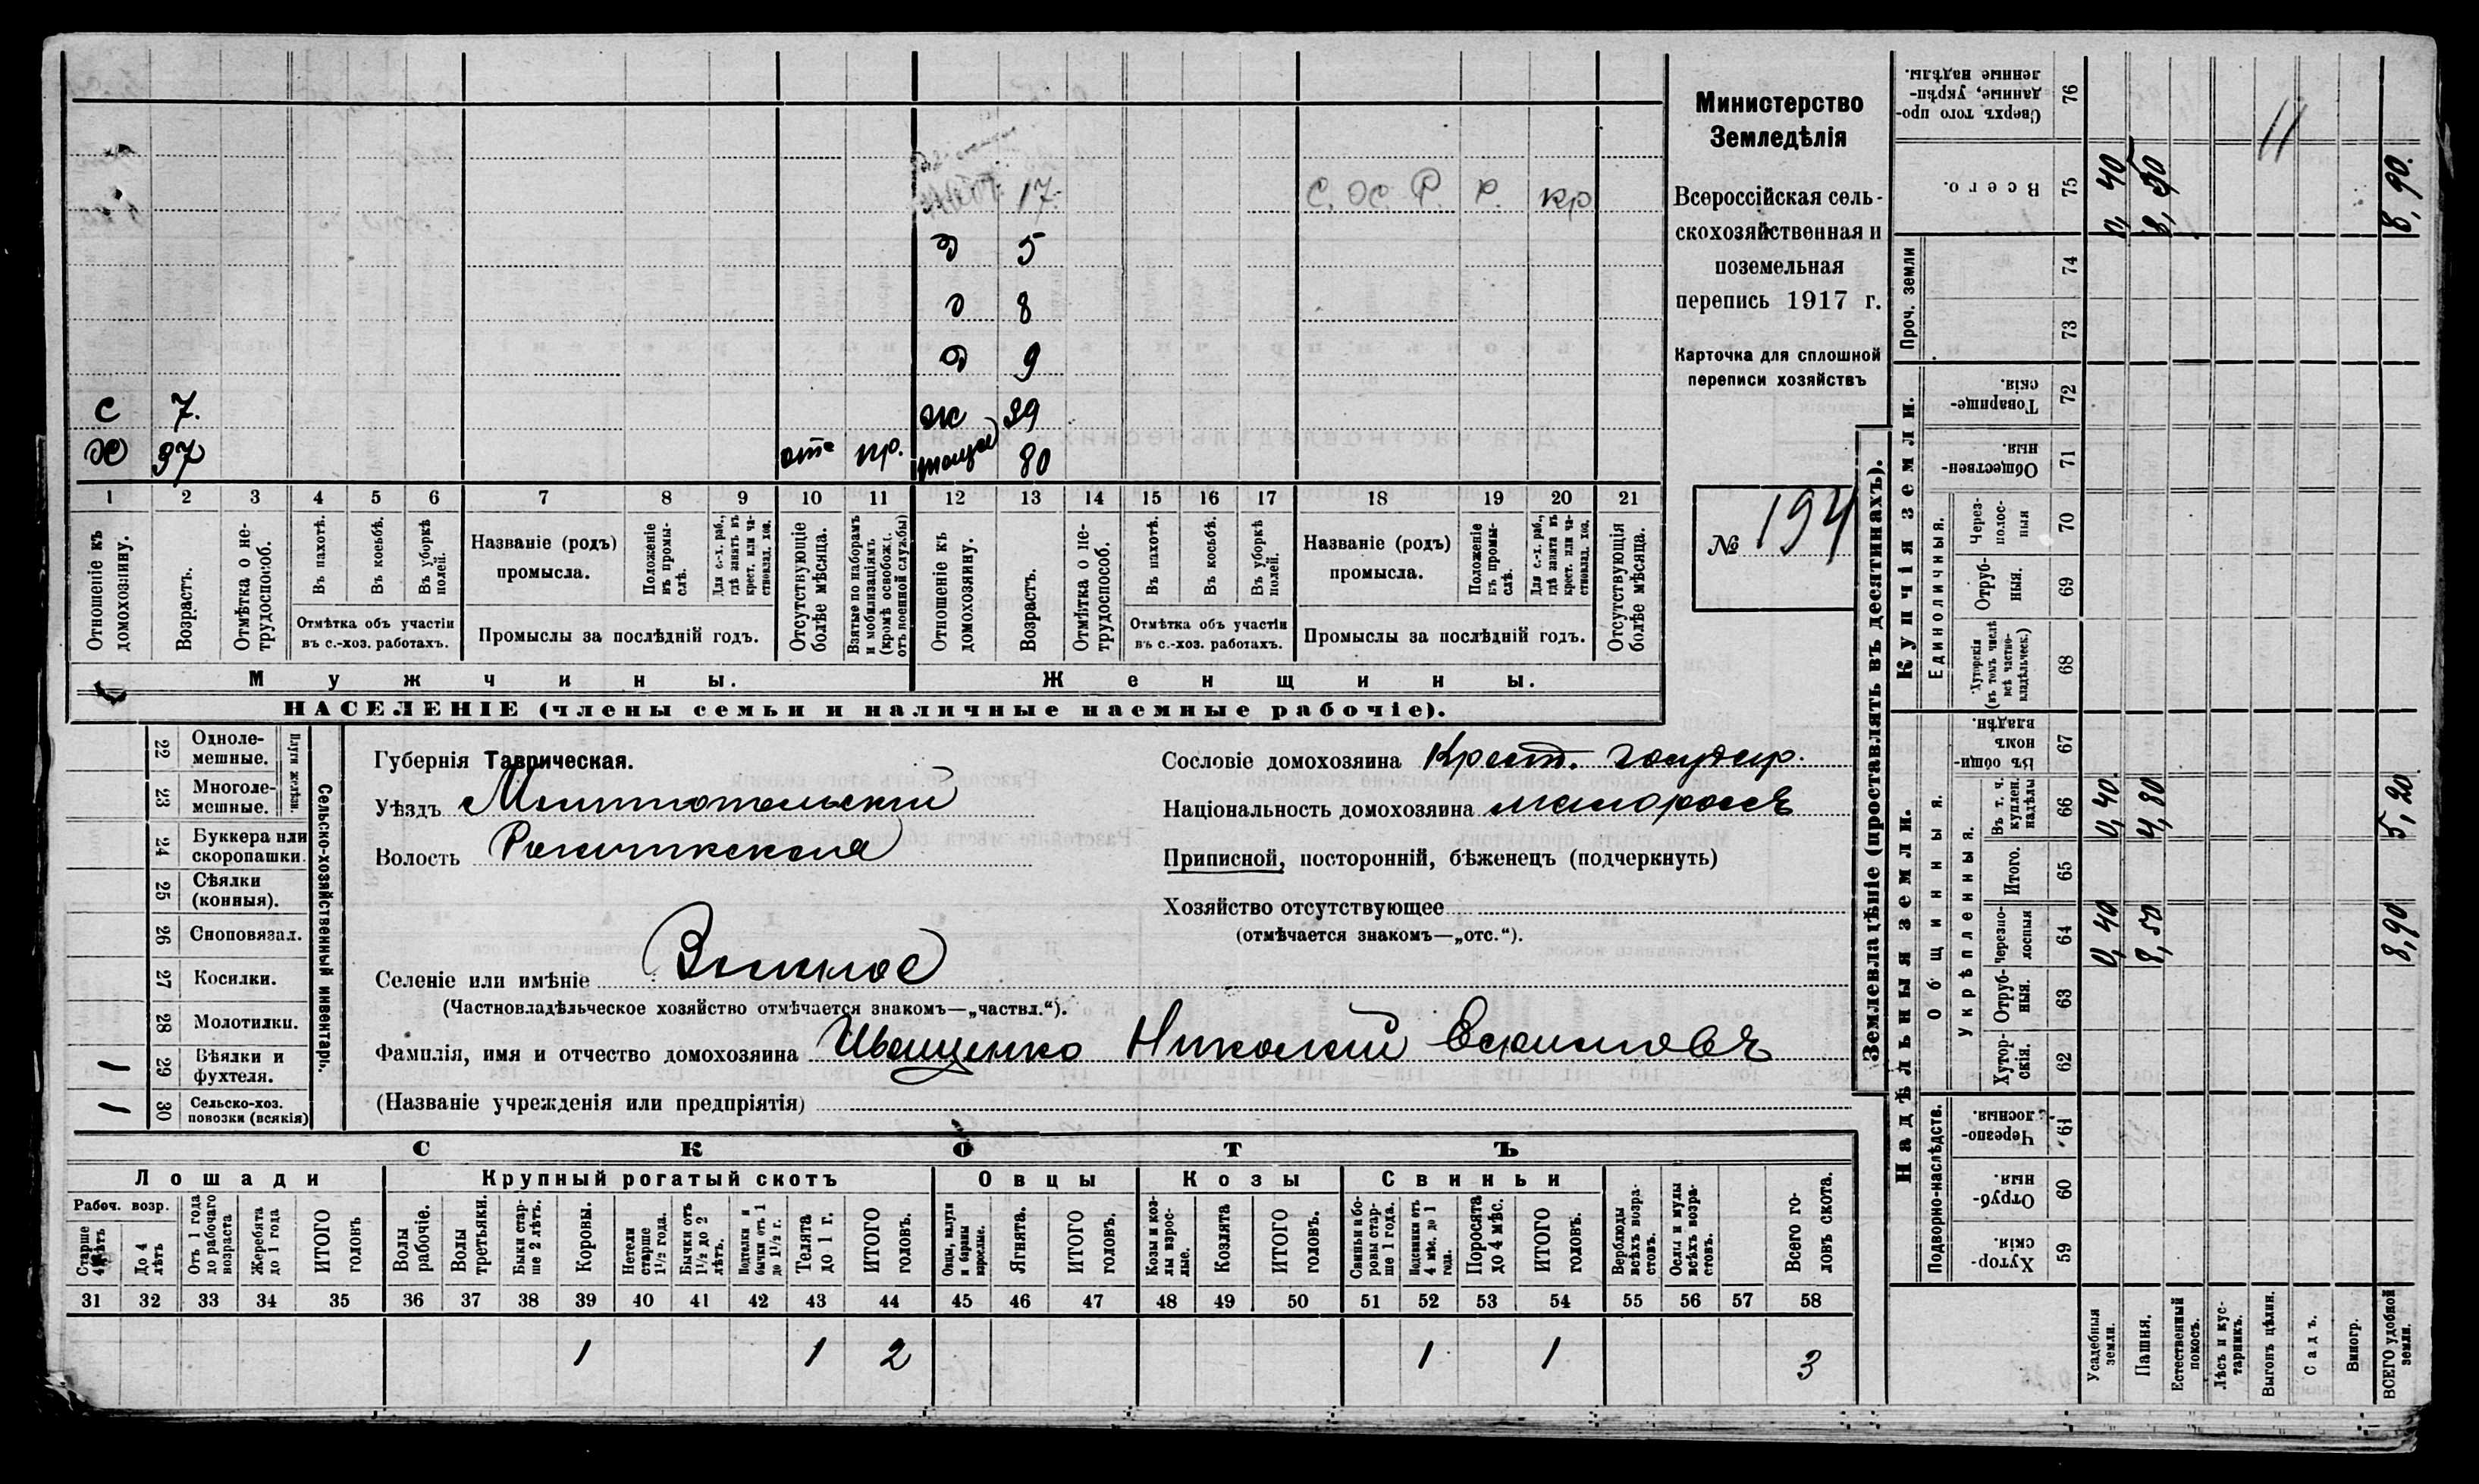 17. С. Ж. Р. Р. кр
д 5
д 8
д 9
С 7. ж 39
Х 37 отс пр. 80
1 2 3 4 5 6 7 8 9 10 11 12 13 14 15 16 17 18 19 20 21
Отношеніе къ домохозяину. Возрастъ. Отмѣтка о нетрудоспособ. Въ пахотѣ. Въ косьбѣ. Въ уборкѣ полей. Названіе (родъ) промысла. Положеніе въ промыслѣ. Для с.-х. раб., гдѣ занятъ въ крест. или частновлад. хоз. Отсутствующіе болѣе мѣсяца. Взятые по наборамъ и мобилизаціямъ (кромѣ освобожд. отъ военной службы)
Отношеніе къ домохозяину. Возрастъ. Отмѣтка о нетрудоспособ. Въ пахотѣ. Въ косьбѣ. Въ уборкѣ полей. Названіе (родъ) промысла. Положеніе въ промыслѣ. Для с.-х. раб., гдѣ занята въ крест. или частновлад. хоз. Отсутствующія болѣе мѣсяца.
Отмѣтка объ участіи въ с.-хоз. работахъ. Промыслы за послѣдній годъ. Отмѣтка объ участіи въ с.-хоз. работахъ. Промыслы за послѣдній годъ.
Мужчины. Женщины.
НАСЕЛЕНІЕ (члены семьи и наличные наемные рабочіе).
Министерство
Земледѣлія
Всероссійская сель-
скохозяйственная и
поземельная
перепись 1917 г.
Карточка для сплошной
переписи хозяйствъ
№ 194
Сельско-хозяйственный инвентарь.
Плуги желѣзн.
22 Одноле-мешные.
23 Многоле-мешные.
24 Буккера или скоропашки.
25 Сѣялки (конныя).
26 Сноповязал.
27 Косилки.
28 Молотилки.
1 29 Вѣялки и фухтеля.
1 30 Сельско-хоз. повозки (всякія)
Губернія Таврическая.
Уѣздъ Мелитопольскій
Волость
Селеніе или имѣніе
(Частновладѣльческое хозяйство отмѣчается знакомъ—„частвл.“).
Фамилія, имя и отчество домохозяина Иващенко Николай
(Названіе учрежденія или предпріятія)
Сословіе домохозяина Крест. государ.
Національность домохозяина малороссъ
Приписной, посторонній, бѣженецъ (подчеркнуть)
Хозяйство отсутствующее
(отмѣчается знакомъ—„отс.“).
СКОТЪ
Лошади Крупный рогатый скотъ Овцы Козы Свиньи
Рабоч. возр.
Старше 4 лѣтъ До 4 лѣтъ Отъ 1 года до рабочаго возраста Жеребята до 1 года ИТОГО головъ Волы рабочіе. Волы третьяки. Быки старше 2 лѣтъ. Коровы. Нетели старше 1½ года. Бычки отъ 1½ до 2 лѣтъ. Подтелки и бычки отъ 1 до 1½ г. Телята до 1 г. ИТОГО головъ. Овцы, валухи и бараны взрослые. Ягнята. ИТОГО головъ. Козы и козлы взрослые. Козлята ИТОГО головъ. Свиньи и боровы старше 1 года. Подсвинки отъ 4 мѣс. до 1 года. Поросята до 4 мѣс. ИТОГО головъ. Верблюды всѣхъ возрастовъ. Ослы и мулы всѣхъ возрастовъ. Всего головъ скота.
31 32 33 34 35 36 37 38 39 40 41 42 43 44 45 46 47 48 49 50 51 52 53 54 55 56 57 58
1 1 2 1 1 3
Землевладѣніе (проставлять въ десятинахъ).
Надѣльныя земли. Купчія земли. Проч. земли
Подворно-наслѣдств. Общинныя. Укрѣпленныя. Единоличныя.
Хуторскія. 59
Отрубныя. 60
Черезполосныя. 61
Хуторскія. 62
Отрубныя. 63
Черезполосныя 64 0,40 8,50 8,90
Итого. 65
Въ т. ч. куплен. надѣлы 66 0,40 4,80 5,20
Въ общинномъ владѣн. 67
Хуторскія (въ томъ числѣ всѣ частновладѣльческ.) 68
Отрубныя. 69
Черезполосныя 70
Общественныя. 71
Товарищескія. 72
73
74
Всего. 75 0,40 8,50 8,90.
Сверхъ того проданные, укрѣпленные надѣлы. 76
11
Усадебныя земли. Пашня. Естественный покосъ. Лѣсъ и кустарникъ. Выгонъ цѣлин. Садъ. Виногр. ВСЕГО удобной земли.